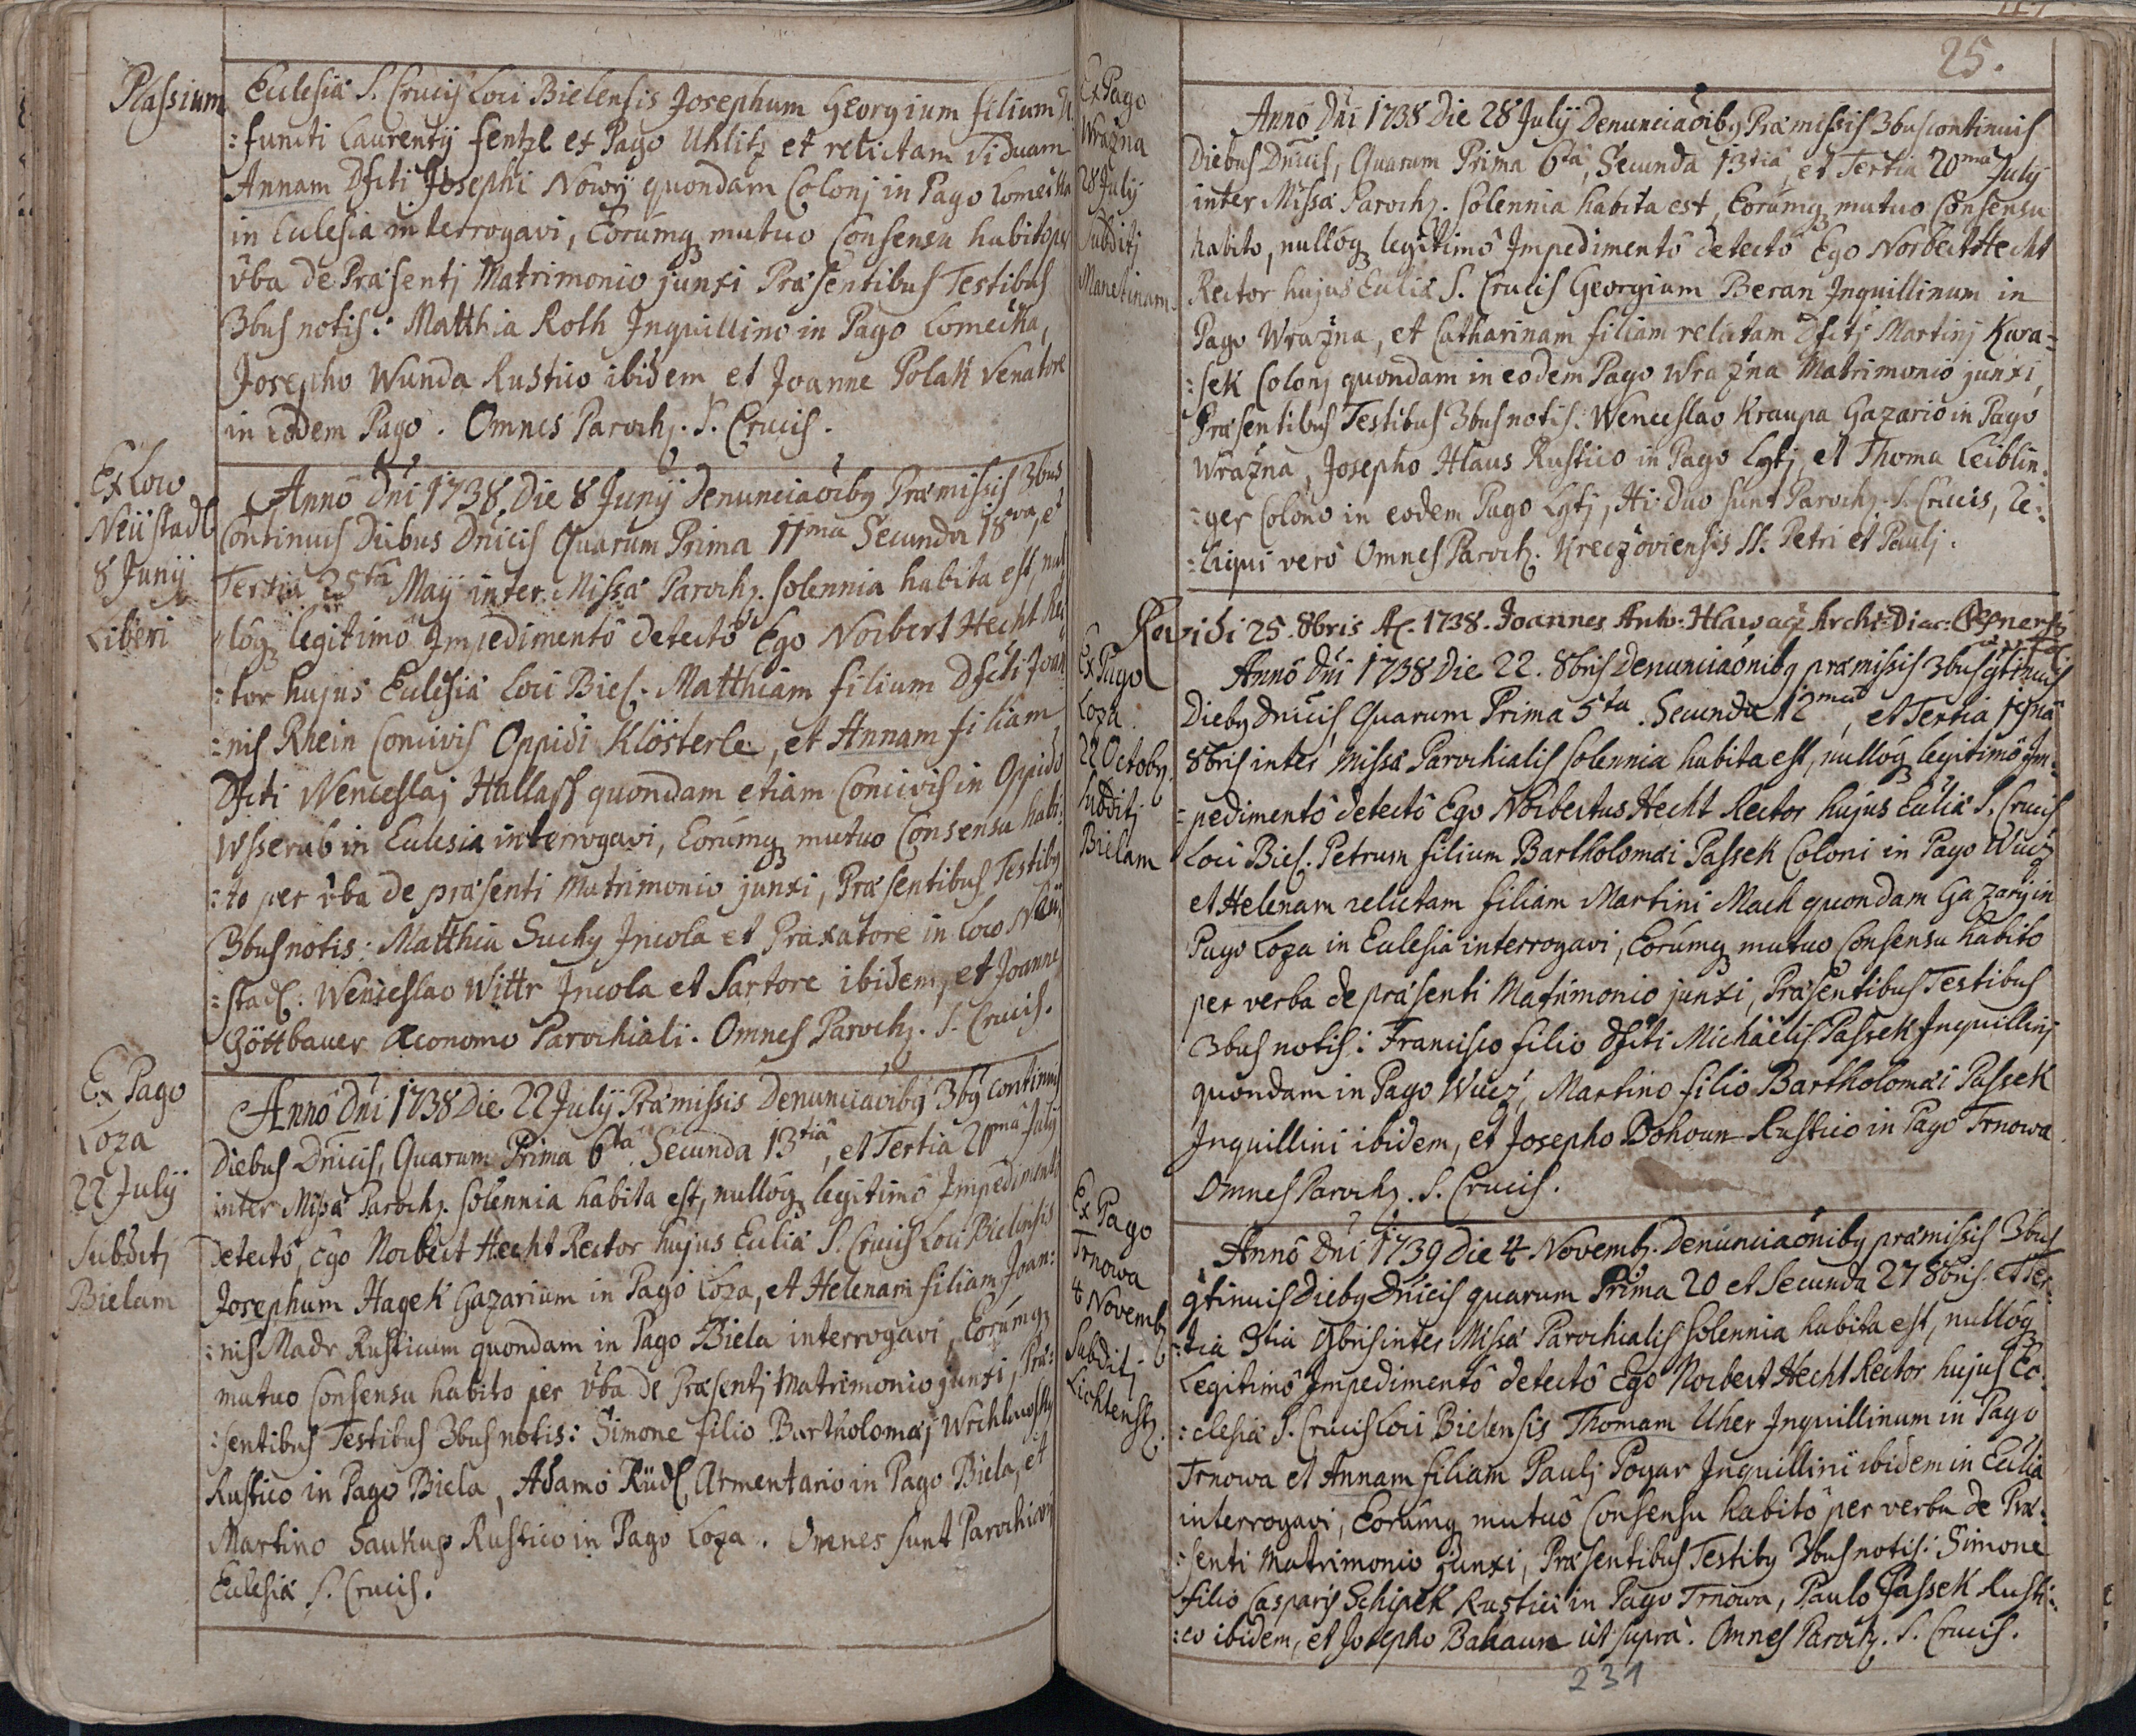 Plassium
Ecclesiâ S. Crucis Loci Bielensis Josephum Georgium filium
:functi Laurentij Fentzl ex Pago Uhlitz et relictam Viduam
Annam Dfcti Josephi Nowy quondam Colonj in Pago
in Eclesia interrogavi, Eorumq mutuo Consensu habito per
v̂ba de Præsentj Matrimonio junxi Præsentibus Testibus
3bus notis: Matthia Roth Inquillino in Pago Lomecžka,
Josepho Wunda Rustico ibidem et Joanne Polak Venatore
in eodem Pago. Omnes Paroch. S. Crucis.
Ex Loco
Neüstadl
8 Junij
Liberi
Anno Dni 1738 Die 8 Junij Denunciaoibq Præmissis 3bus
Continuis Diebus Dnicis Quarum Prima 11ma Secunda 18va, et
Tertia 25ta Maij inter Missâ Paroch. Solennia habita est, nul
loq legitimô Impedimentô detectô Ego Norbert Hecht Rec
:tor hujus Eclesiâ Loci Biel. Matthiam filium Dfcti Joan
:nis Rhein Concivis Oppidi Klösterle, et Annam filiam
Dfcti Wenceslaj Hallass quondam etiam Concivis in Oppido
Wsserub in Eclesia interrogavi, Eorumq mutuo Consensu habi:
:to per v̂ba de præsenti Matrimonio junxi, Præsentibus Testibq
3bus notis: Matthia Suchy Incola et Praxatore in Loco Neü
:stadl. Wenceslao Wittr Incola et Sartore ibidem, et Joanne
Göttbauer Œconomo Parochiali. Omnes Paroch. S. Crucis.
Ex Pago
Loza
22 Julij
Subditj
Bielam
Anno Dni 1738 Die 22 Julij Præmissis Denunciaoibq 3bq Continuis
Diebus Dnicis, Quarum Prima 6ta Secunda 13tia, et Tertia 20ma July
inter Missâ Paroch. Solennia habita est, nulloq legitimô Impedimentô
detectô, Ego Norbert Hecht Rector hujus Ecliâ S. Crucis Loci Bielensis
Josephum Hagek Gazarium in Pago Loza, et Helenam filiam Joan:
:nis Madr Rusticum quondam in Pago Biela interrogavi, Eorumq
mutuo Consensu habito per v̂ba de Præsentj Matrimonio junxi, Præ:
:sentibus Testibus 3bus notis: Simone filio Bartholomæj Wrchlawsky
Rustico in Pago Biela, Adamo Rüdl Armentario in Pago Biela, et
Martino Saukup Rustico in Pago Loza. Omnes sunt Parochiani
Eclesiâ S. Crucis.
25.
Ex Pago
Wražna
28 Julij
Subditj
Manetinam
Anno Dni 1738 Die 28 Julij Denunciaoibq Præmissis 3bus continuis
Diebus Dnicis, Quarum Prima 6ta, Secunda 13tia, et Tertia 20ma July
inter Missâ Paroch. Solennia habita est, Eorumq mutuo Consensu
habito, nulloq legitimô Impedimentô detectô Ego Norbert Hecht
Rector hujus Ecliâ S. Crucis Georgium Beran Inquillinum in
Pago Wražna, et Catharinam filiam relictam Dfctj Martinj Kwa=
:sek Colonj quondam in eodem Pago Wražna Matrimonio junxi,
Præsentibus Testibus 3bus notis: Wenceslao Kraupa Gazario in Pago
Wražna, Josepho Hlaus Rustico in Pago Lgtj, et Thoma Leiblin
:ger Colono in eodem Pago Lgtj, Hi duo sunt Paroch. S. Crucis, re:
:liqui verô Omnes Paroch. Kreczoviensis SS. Petri et Paulj.
Revidi 25. 8bris Ac. 1738. Joannes Ant: Hlawacz Archi-Diac:
Ex Pago
Loza
22 Octobq
Subditj
Bielam
Anno Dni 1738 Die 22. 8bris Denunciaonibq præmissis 3bus gtinuis
Diebq Dnicis, Quarum Prima 5ta. Secunda 12ma, et Tertia 19na
8bris inter Missâ Parochialis Solennia habita est, nulloq legitimô Im:
=pedimentô detectô Ego Norbertus Hecht Rector hujus Ecliâ S. Crucis
Loci Biel. Petrum filium Bartholomæi Passek Coloni in Pago Wücz
et Helenam relictam filiam Martini Mach quondam Gazarij in
Pago Loza in Eclesia interrogavi, Eorumq mutuo Consensu habito
per verba de præsenti Matrimonio junxi, Præsentibus Testibus
3bus notis: Francisco filio dfcti Michäelis Passek Inquillinj
quondam in Pago Wucz, Martino filio Bartholomæi Passek
Inquillini ibidem, et Josepho Bohoun Rustico in Pago Trnowa.
Omnes Paroch. S. Crucis.
Ex Pago
Trnowa
4 Novemb
Subditj
Lichtenst.
Anno Dni 1739 Die 4 Novemb. Denunciaonibq præmissis 3bus
gtinuis Diebq Dnicis quarum Prima 20 et Secunda 27 8bris. et Ter:
:tia 3tia 9bris inter Missâ Parochialis Solennia habita est, nulloq
Legitimô Impedimentô detectô Ego Norbert Hecht Rector hujus Ec:
:clesiâ S. Crucis Loci Bielensis Thomam Uher Inquillinum in Pago
Trnowa et Annam filiam Paulj Pogar Inquillini ibidem in Eclia
interrogavi, Eorumq mutuô Consensu habitô per verba de Præ:
:senti Matrimonio junxi, Præsentibus Testibq 3bus notis: Simone
filio Casparis Schipek Rustici in Pago Trnowa, Paulo Passek Rusti:
:co ibidem, et Josepho Bahaun ut supra. Omnes Paroch. S. Crucis.
231